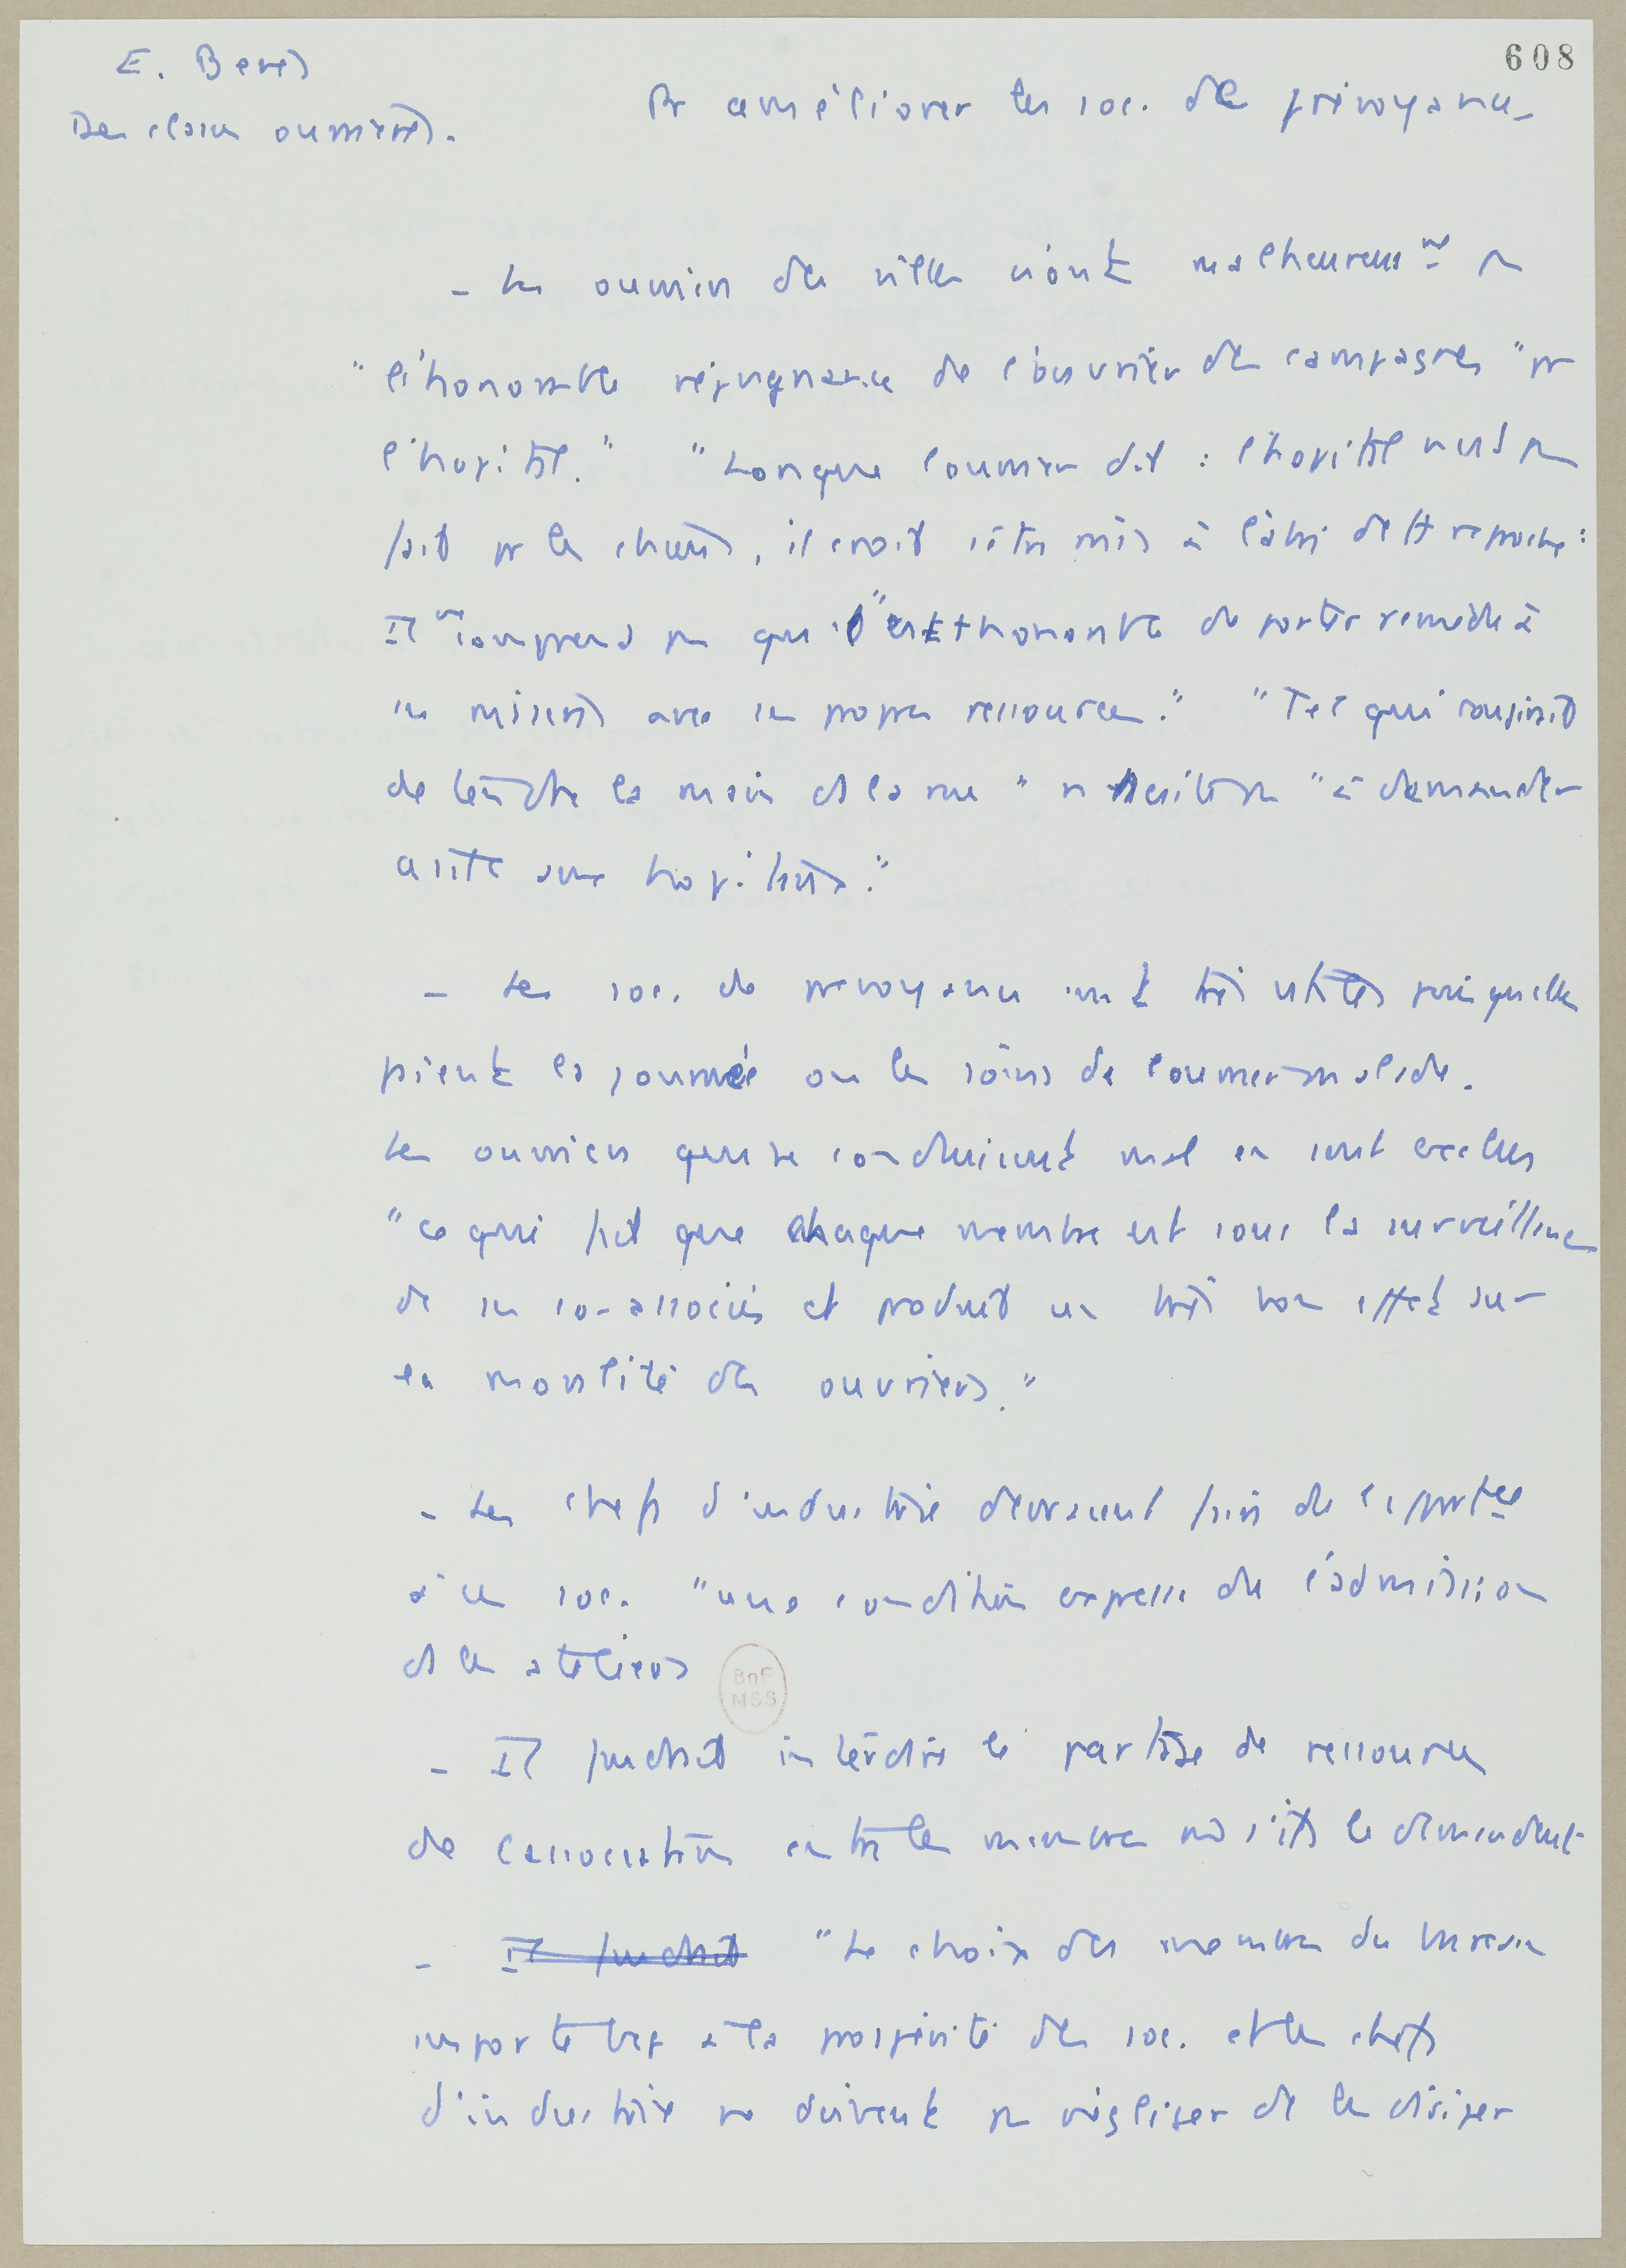 608
E. Beres
Des classes ouvrières.
Pr améliorer les soc. de prévoyance
- Les ouvriers des villes n'ont malheureusmt pas
"l'honorable répugnance de l'ouvrier des campagnes" pr
l'hôpital." "Lorsque l'ouvrier dit : l'hôpital n'est pas
fait pr les chiens, il croit s'être mis à l'abri de tt reproche :
Il ne comprend pas qu'il "est + honorable de porter remède à
ses misères avec ses propres ressources." "Tel qui rougirait
de tendre la main ds la rue" n'hésite pas "à demander
asile aux hôpitaux."
- Les soc. de prévoyance sont très utiles puisqu'elles
paient la journée ou les soins de l'ouvrier malade.
Les ouvriers qui se conduisent mal en sont exclus
"ce qui fait que chaque membre est sous la surveillance
de ses co-associés et produit un très bon effet sur
la moralité des ouvriers."
- Les chefs d'industrie devraient faire de l'
à ces soc. "une condition expresse de l'admission
ds les ateliers
BnF
MSS
- Il faudrait interdire le partage de ressources
de l'association entre les membres mê s'ils le demandent
- Il faudrait "Le choix des membres du bureau
importe bcp à la prospérité des soc. et les chefs
d'industrie ne doivent pas négliger de les diriger